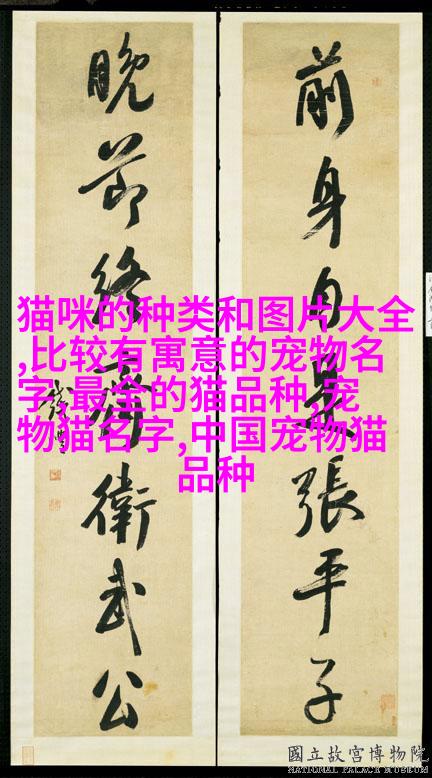 前身自是張平子
晚節終齊衛武公
猫咪的种类和图片大全
,比较有寓意的宠物名
字,最全的猫品种,宠
物猫名字,中国宠物猫
品种
國立故宮博物院
NATIONAL PALACE MUSEUM